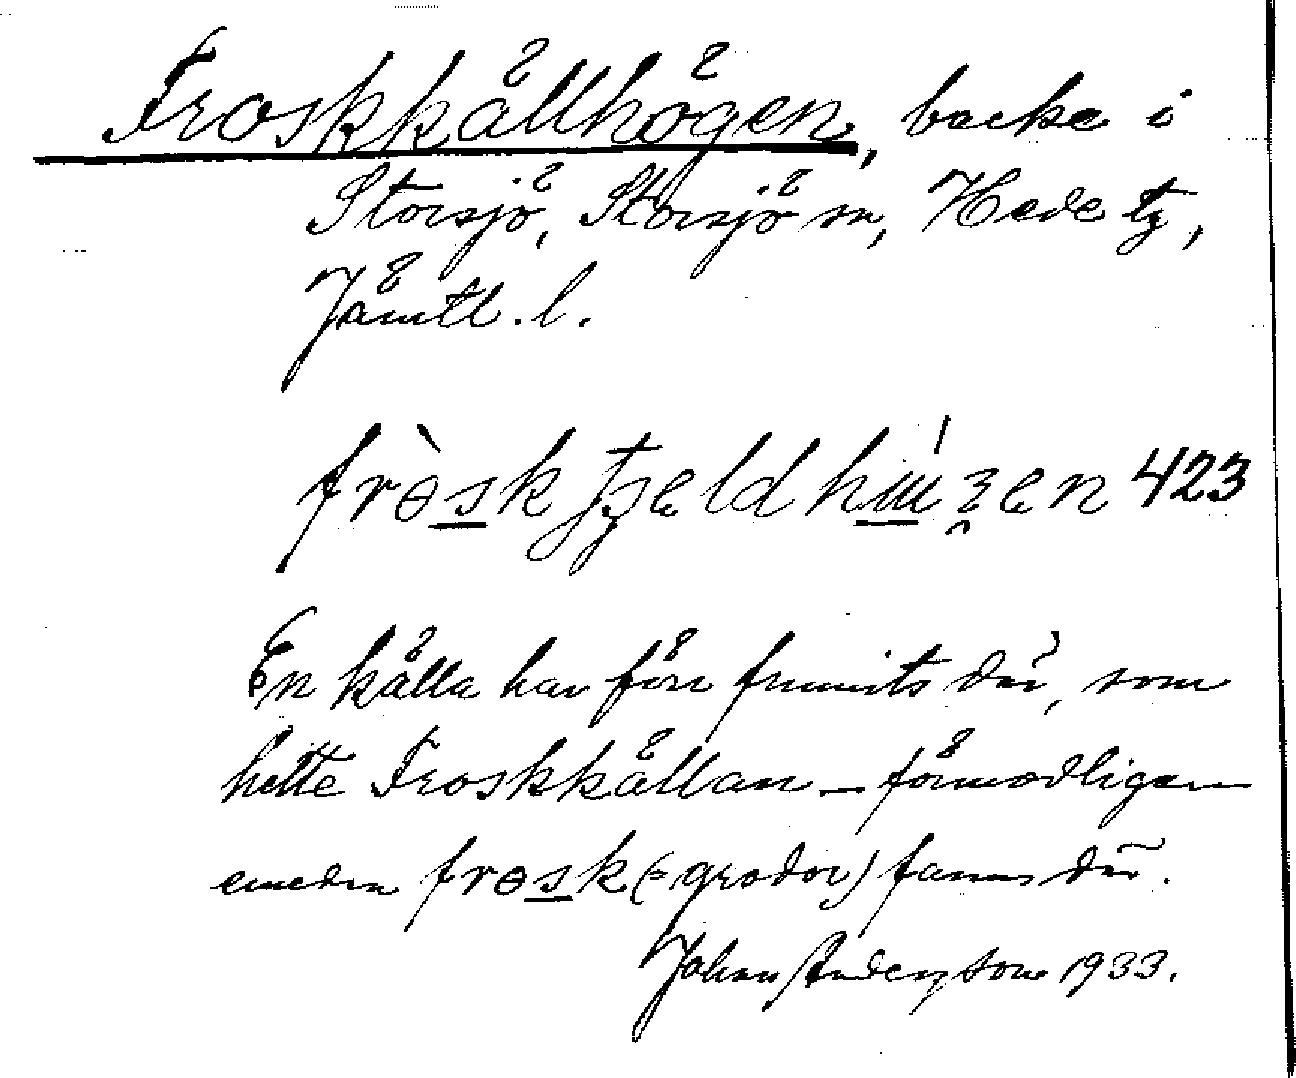 Froskkällhögen, backe i
Storsjö, Storsjö sn, Hede tg,
Jämtl. l.
423
En källa har förr funnits där, som
hette Froskkällan – förmodligen
emedan frɵsk (= grodor) fanns där.
Johan Anderzon 1933.